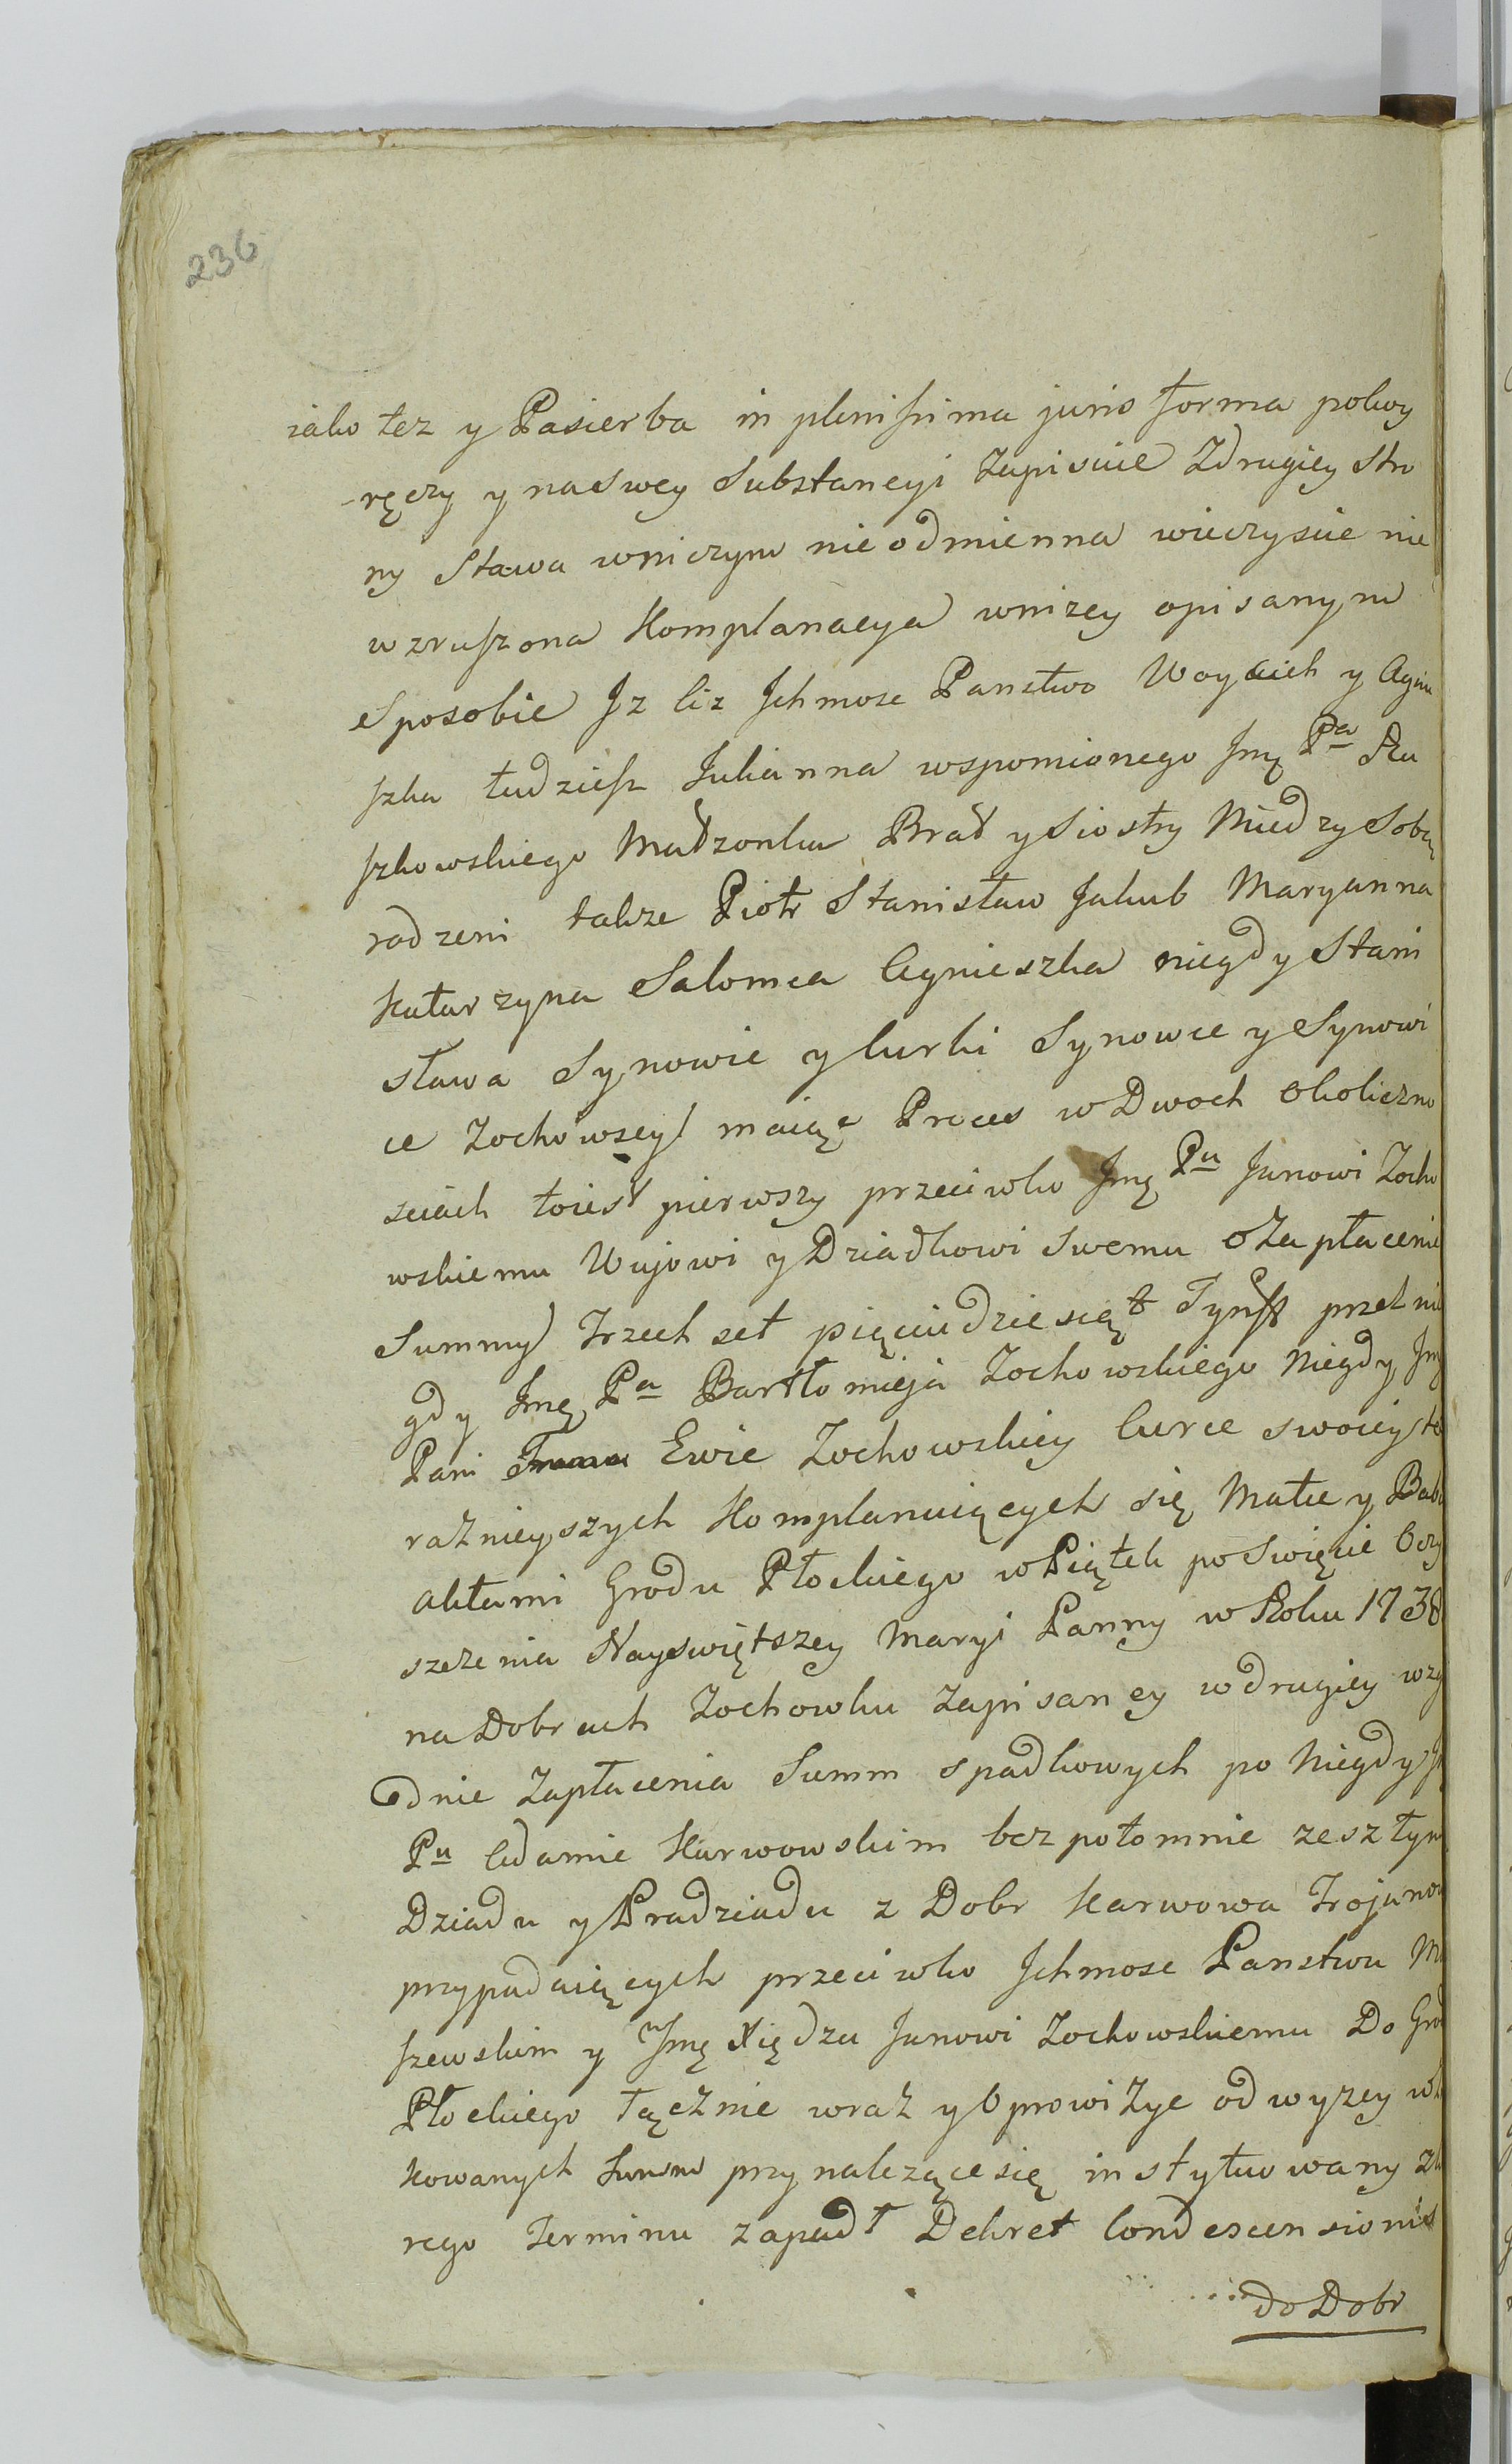 236
iako tez y Pasierba in plenissima juris forma pokoy
-ręczy y naswey Substancyi Zapisuie Zdrugiey Stro
ny Stawa wniczym nieodmienna wieczyscie nie
wzruszona Komplanacya wnizey opisanym
Sposobie Jz liz Jchmosc Panstwo Woyciech y Agnie
szka tudziesz Julianna wspomionego Jmę Pa Ru
szkowskiego Małzonka Brat y Siostry Miedzy Sobą
rodzeni takze Piotr Stanisław Jakub Maryanna
Katarzyna Salomea Agnieszka niegdy Stani
sława Synowie y Curki Synowce y Synowi
ce Zochowscy maiąc Proces w Dwoch Okoliczno
sciach toiest pierwszy przeciwko Jmę Pu Janowi Zocho
wskiemu Wujowi y Dziadkowi Swemu o Zapłacenie
Summy Trzech set pięciudziesiąt Tynff przez nie
gdy Jmę Pa Bartłomieja Zochowskiego Niegdy Jmę
Pani Ewie Zochowskiey Curce swoiey te
raznieyszych Komplanuiących się Matce y Babce
aktami Grodu Płockiego w Piątek po Swięcie Oczy
szczenia Nayswiętszey Maryi Panny w Roku 1738
na Dobrach Zochowku Zapisaney w drugiey wzglę
dnie Zapłacenia Summ spadkowych po Niegdy
Pu Adamie Karwowskim bezpotomnie zeszłym
Dziadu y Pradziadu z Dobr Karwowa Trojanow
przypadaiących przeciwko Jchmosc Panstwu
szewskim y Jmę Xiędzu Janowi Zochowskiemu Do Grodu
Płockiego Łącznie wraz y o prowizye od wyzey
kowanych Summ przynalezącesię instytuowany z kto
rego Terminu zapadł Dekret Condescensionis
do Dobr